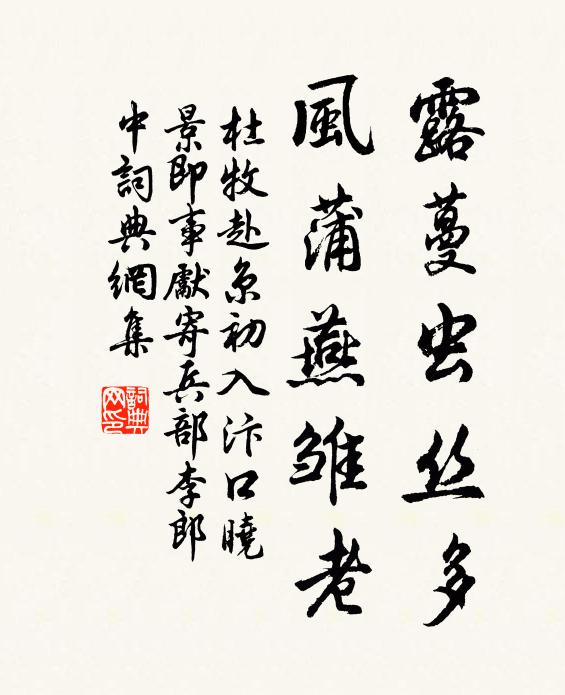 露蔓虫丝多
風蒲燕雏老
杜牧赴京初入汴口曉
景即事獻寄兵部李郎
中詞典網集
詞典网印